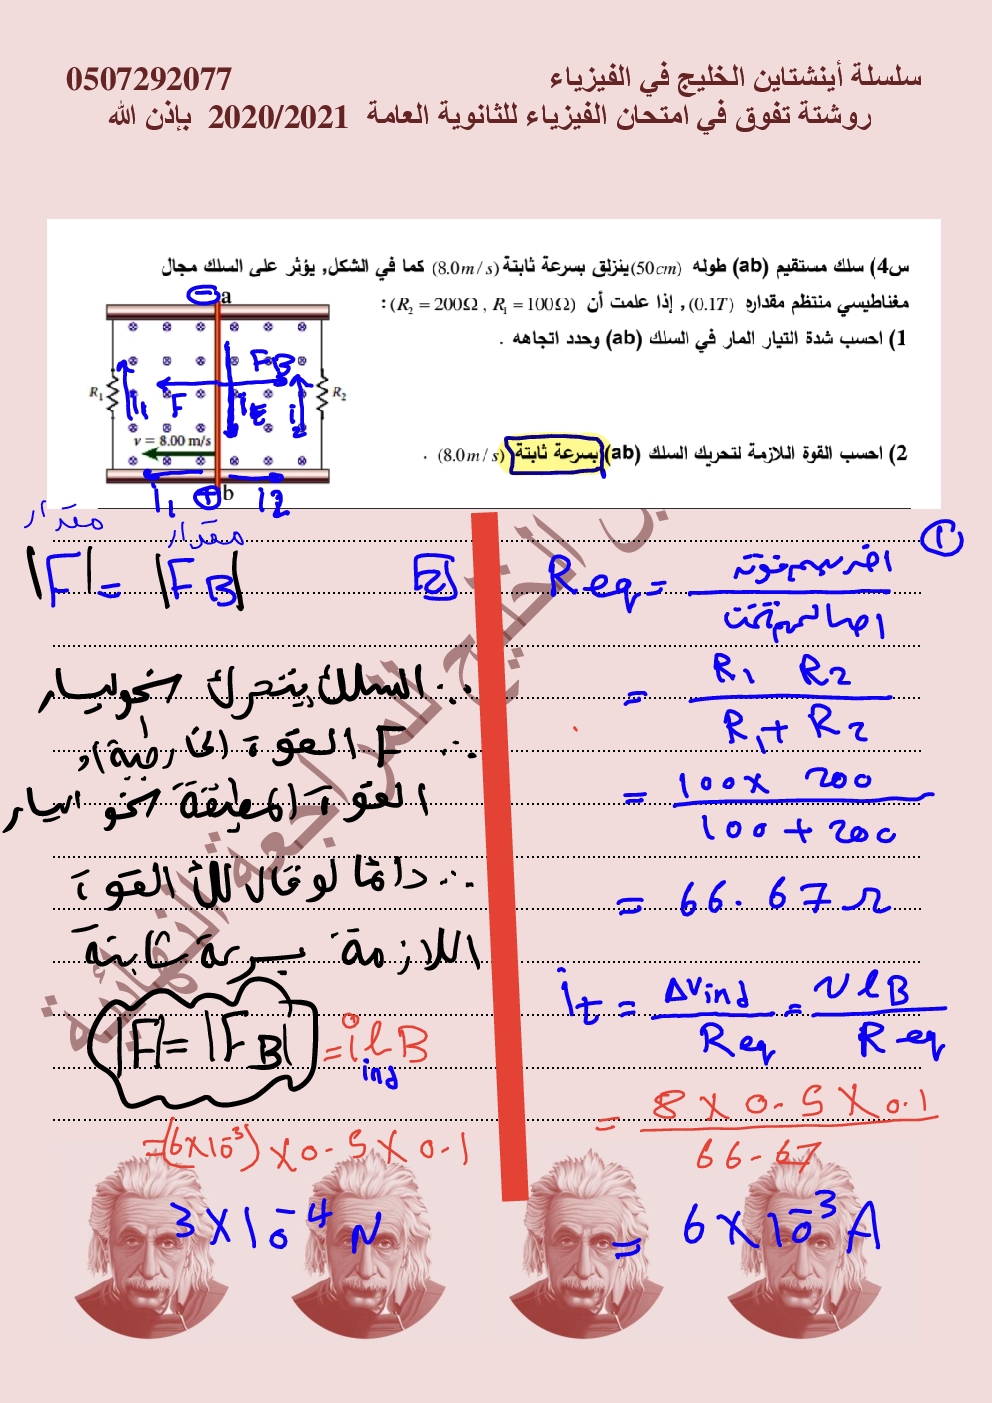 سلسلة أينشتاين الخليج في الفيزياء 0507292077
روشتة تفوق في امتحان الفيزياء للثانوية العامة 2020/2021 بإذن الله
س4) سلك مستقيم (ab) طوله (50cm) ينزلق بسرعة ثابتة (8.0m/s) كما في الشكل, يؤثر على السلك مجال
مغناطيسي منتظم مقداره (0.1T) , إذا علمت أن (R₂ = 200Ω , R₁ = 100Ω) :
1) احسب شدة التيار المار في السلك (ab) وحدد اتجاهه .
2) احسب القوة اللازمة لتحريك السلك (ab) بسرعة ثابتة (8.0m/s) .
− a
F B
R₁ i₁ F it i₂ R₂
v = 8.00 m/s
i₁ + b i2
1
Req =
= R₁ R₂ / R₁ + R₂
= 100 x 200 / 100 + 200
= 66.67 Ω
it = ΔVind / Req = v l B / Req
= 8 X 0.5 X 0.1 / 66.67
= 6 X 10⁻³ A
2
مقدار مقدار
|F| = |FB|
∵ السلك يتحرك نحو اليسار
∴ F القوة الخارجية أو
القوة المطبقة نحو اليسار
∴ دائما لو قال لك القوة
اللازمة بسرعة ثابتة
|F| = |FB| = i ind l B
= (6X10⁻³) X 0.5 X 0.1
3 X 10⁻⁴ N
الخليج للمراجعة النهائية